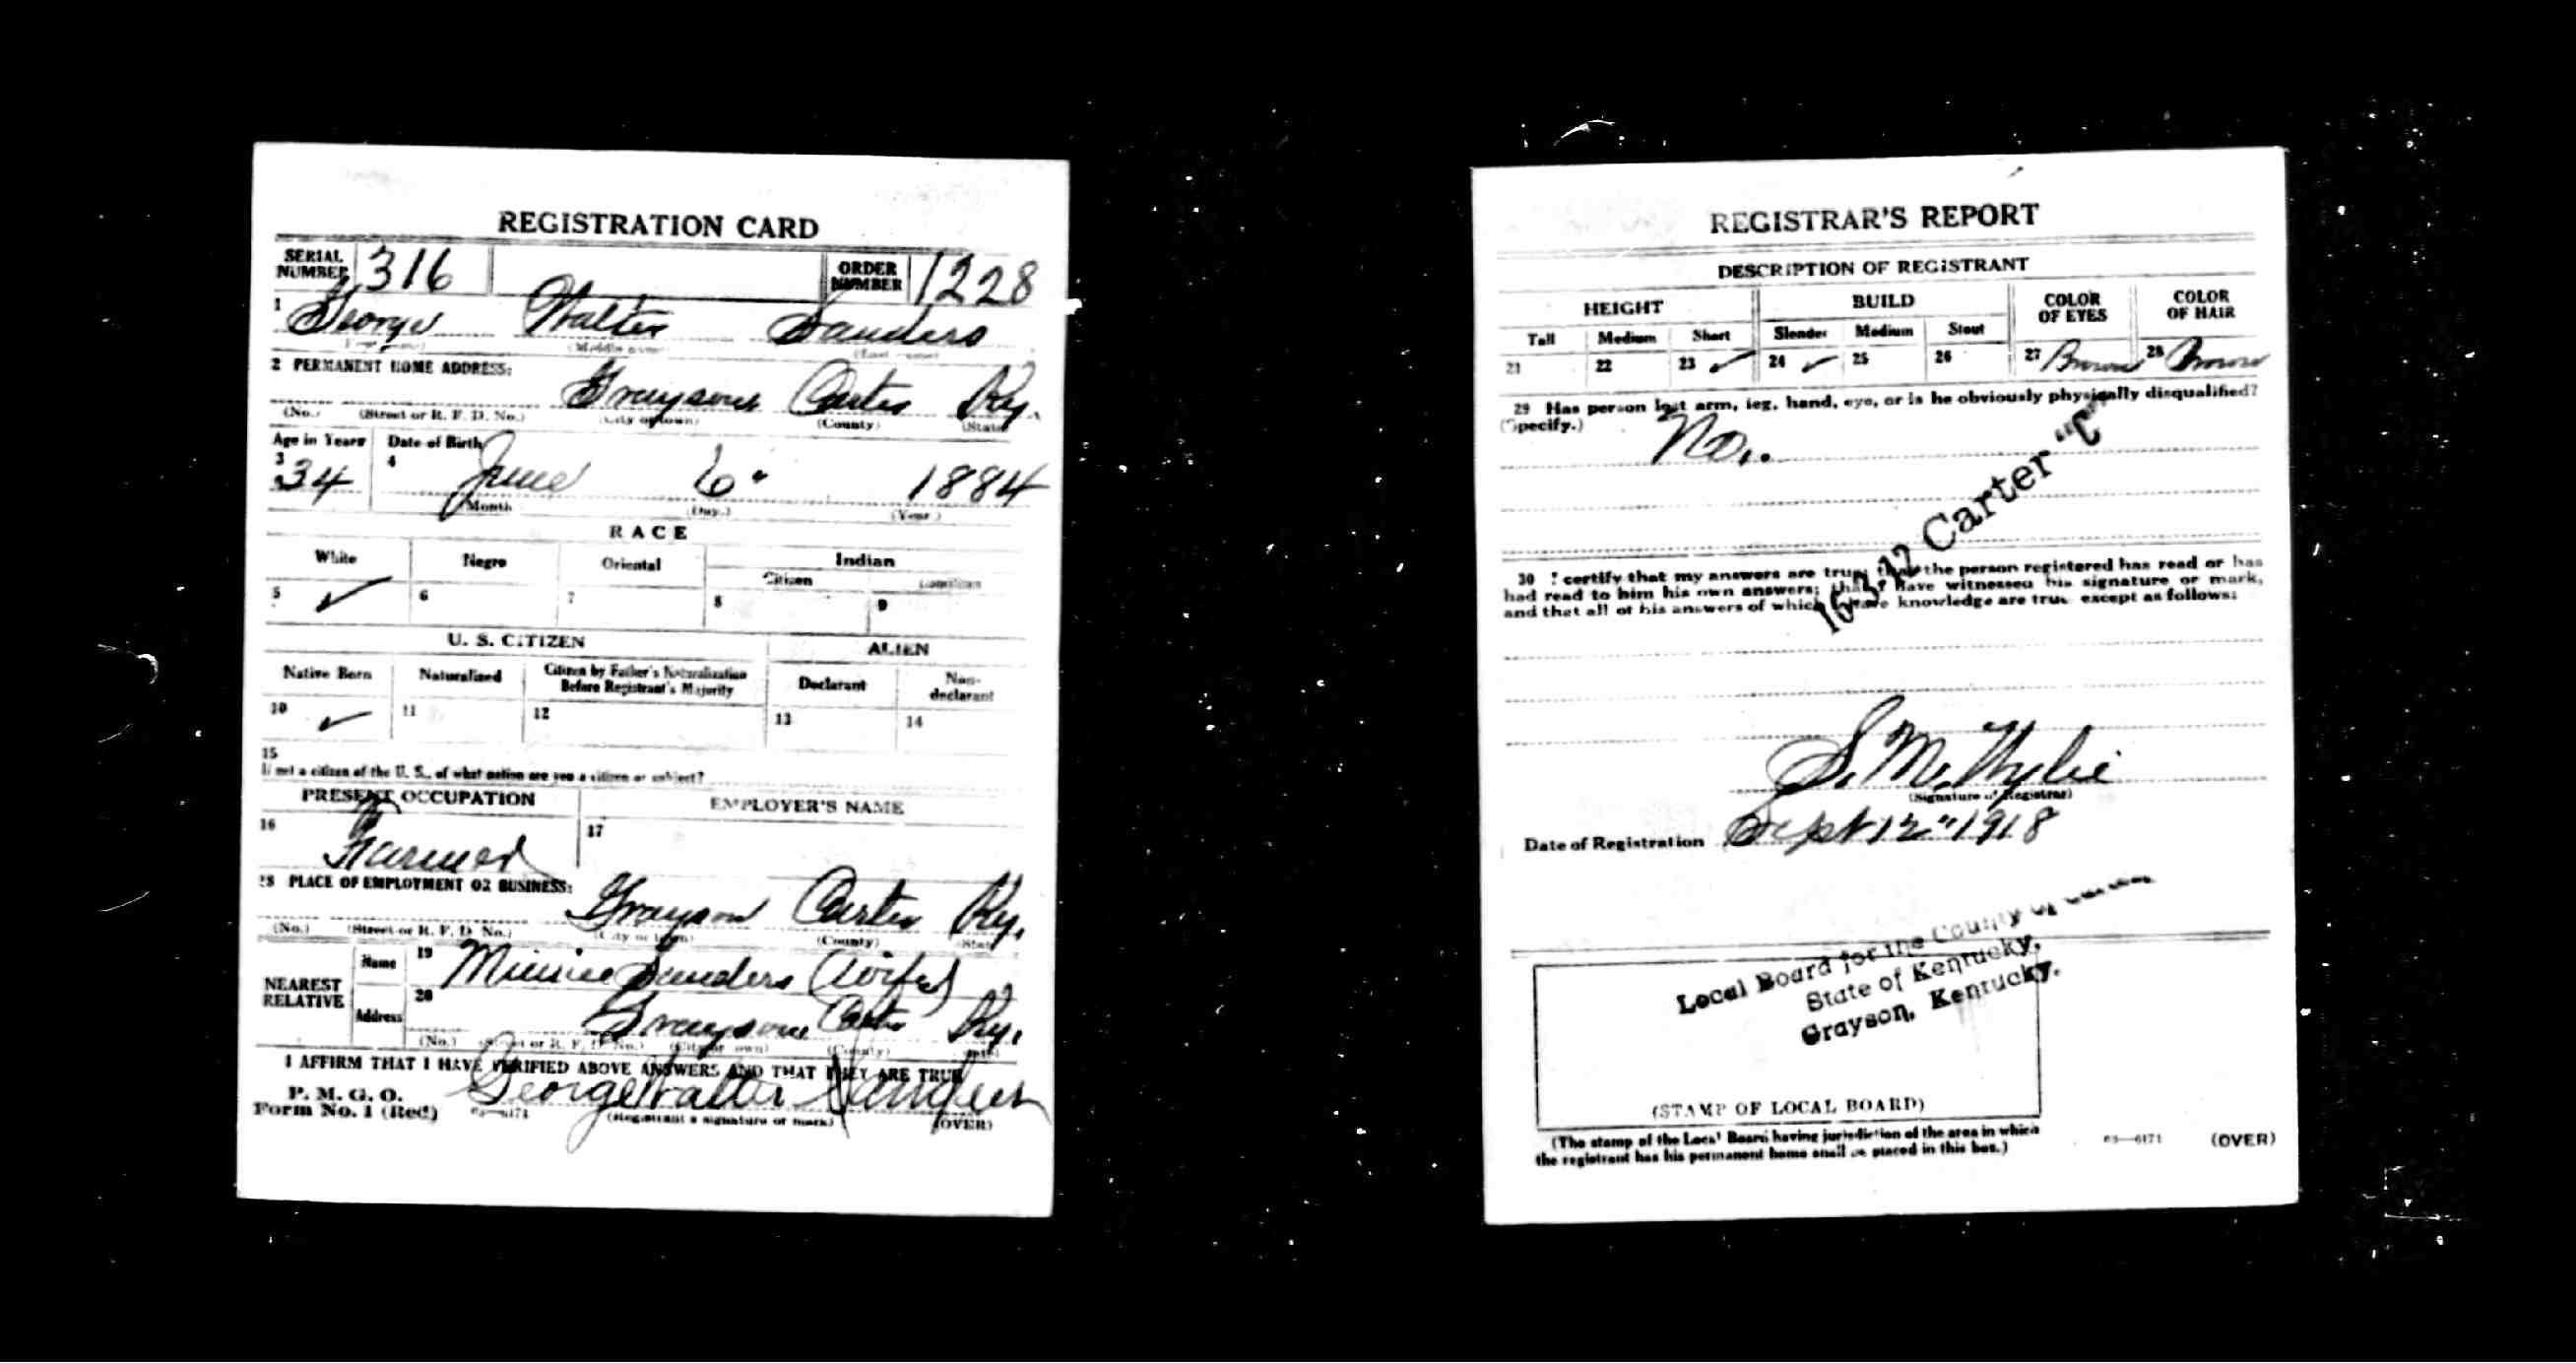 REGISTRATION CARD
SERIAL NUMBER 316 ORDER NUMBER 1228
1 George Walter Sanders
(Middle name) (Last name)
2 PERMANENT HOME ADDRESS: Grayson Carter Ky.
(No.) (Street or R. F. D. No.) (City or town) (County) (State)
Age in Years Date of Birth
3 34 4 June 6" 1884
(Month (Day.) (Year)
RACE
White Negro Oriental Indian
Citizen
5 ✓ 6 7 8 9
U. S. CITIZEN ALIEN
Native Born Naturalized Citizen by Father's Naturalization Before Registrant's Majority Declarant Non-declarant
10 ✓ 11 12 13 14
15
If not a citizen of the U. S., of what nation are you a citizen or subject?
PRESENT OCCUPATION EMPLOYER'S NAME
16 Farmer 17
18 PLACE OF EMPLOYMENT OR BUSINESS:
Grayson Carter Ky.
(No.) (Street or R. F. D. No.) (City or town) (County) (State
NEAREST RELATIVE Name 19 Minnie Sanders (Wife)
Address 20 Grayson Carter Ky.
(No.) (Street or R. F. D. No.) (City or town) (County) (State)
I AFFIRM THAT I HAVE VERIFIED ABOVE ANSWERS AND THAT THEY ARE TRUE
P. M. G. O.
Form No. 1 (Red) 03—6171 George Walter Sanders
(Registrant's signature or mark) (OVER)
REGISTRAR'S REPORT
DESCRIPTION OF REGISTRANT
HEIGHT BUILD COLOR OF EYES COLOR OF HAIR
Tall Medium Short Slender Medium Stout
21 22 23 ✓ 24 ✓ 25 26 27 Brown 28 Brown
29 Has person lost arm, leg, hand, eye, or is he obviously physically disqualified?
(Specify.) No.
16-3-12 Carter "C"
30 I certify that my answers are true; that the person registered has read or has
had read to him his own answers; that I have witnessed his signature or mark,
and that all of his answers of which I have knowledge are true except as follows:
S. M. Wylie
(Signature of Registrar)
Date of Registration Sept 12" 1918
Local Board for the County of Carter
State of Kentucky,
Grayson, Kentucky.
(STAMP OF LOCAL BOARD)
(The stamp of the Local Board having jurisdiction of the area in which
the registrant has his permanent home shall be placed in this box.)
03—6171 (OVER)